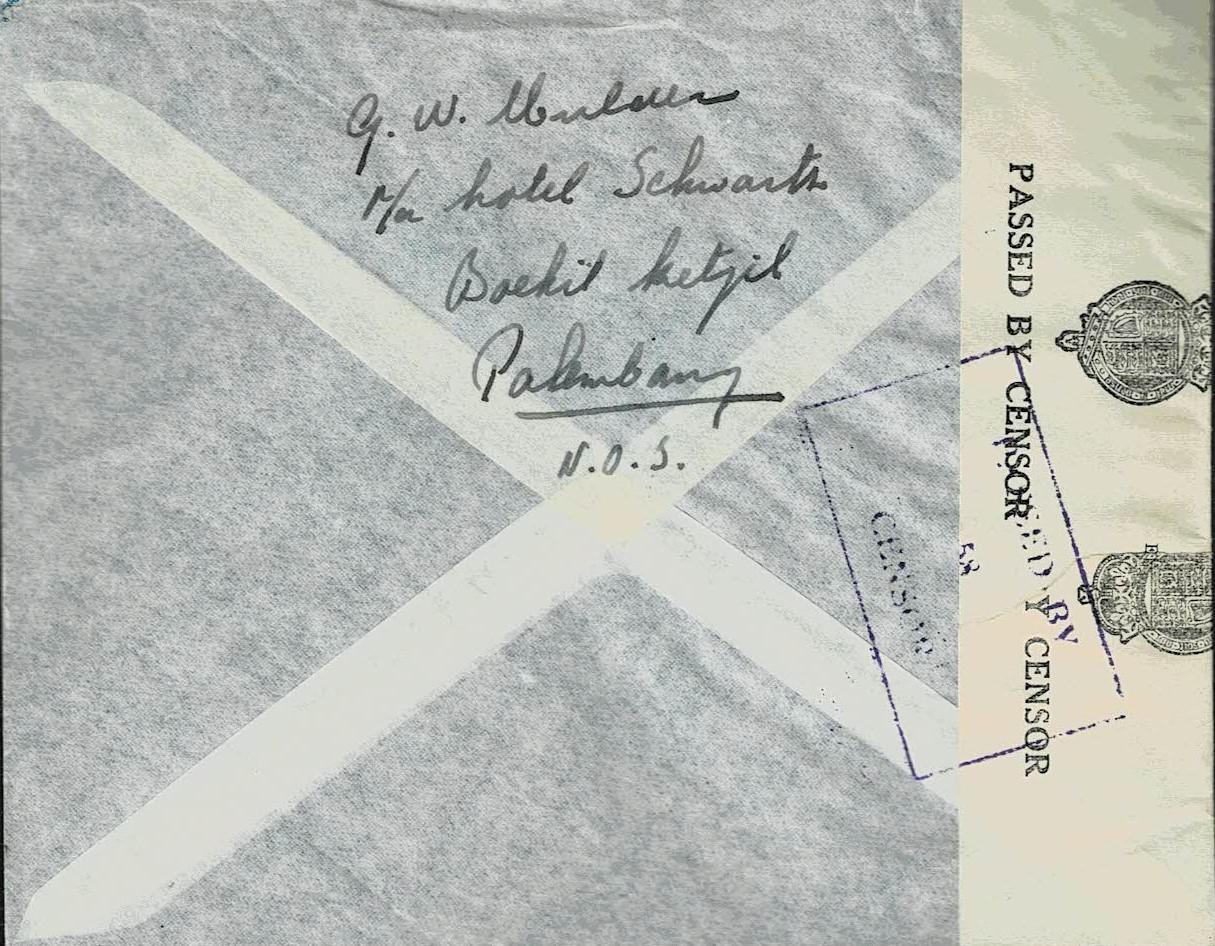 G. W. Mulder
p/a hotel Schwartz
Boekit ketjil
Palembang
N.O.I.
PASSED BY CENSOR
Y CENSOR
BY
58
CENSOR